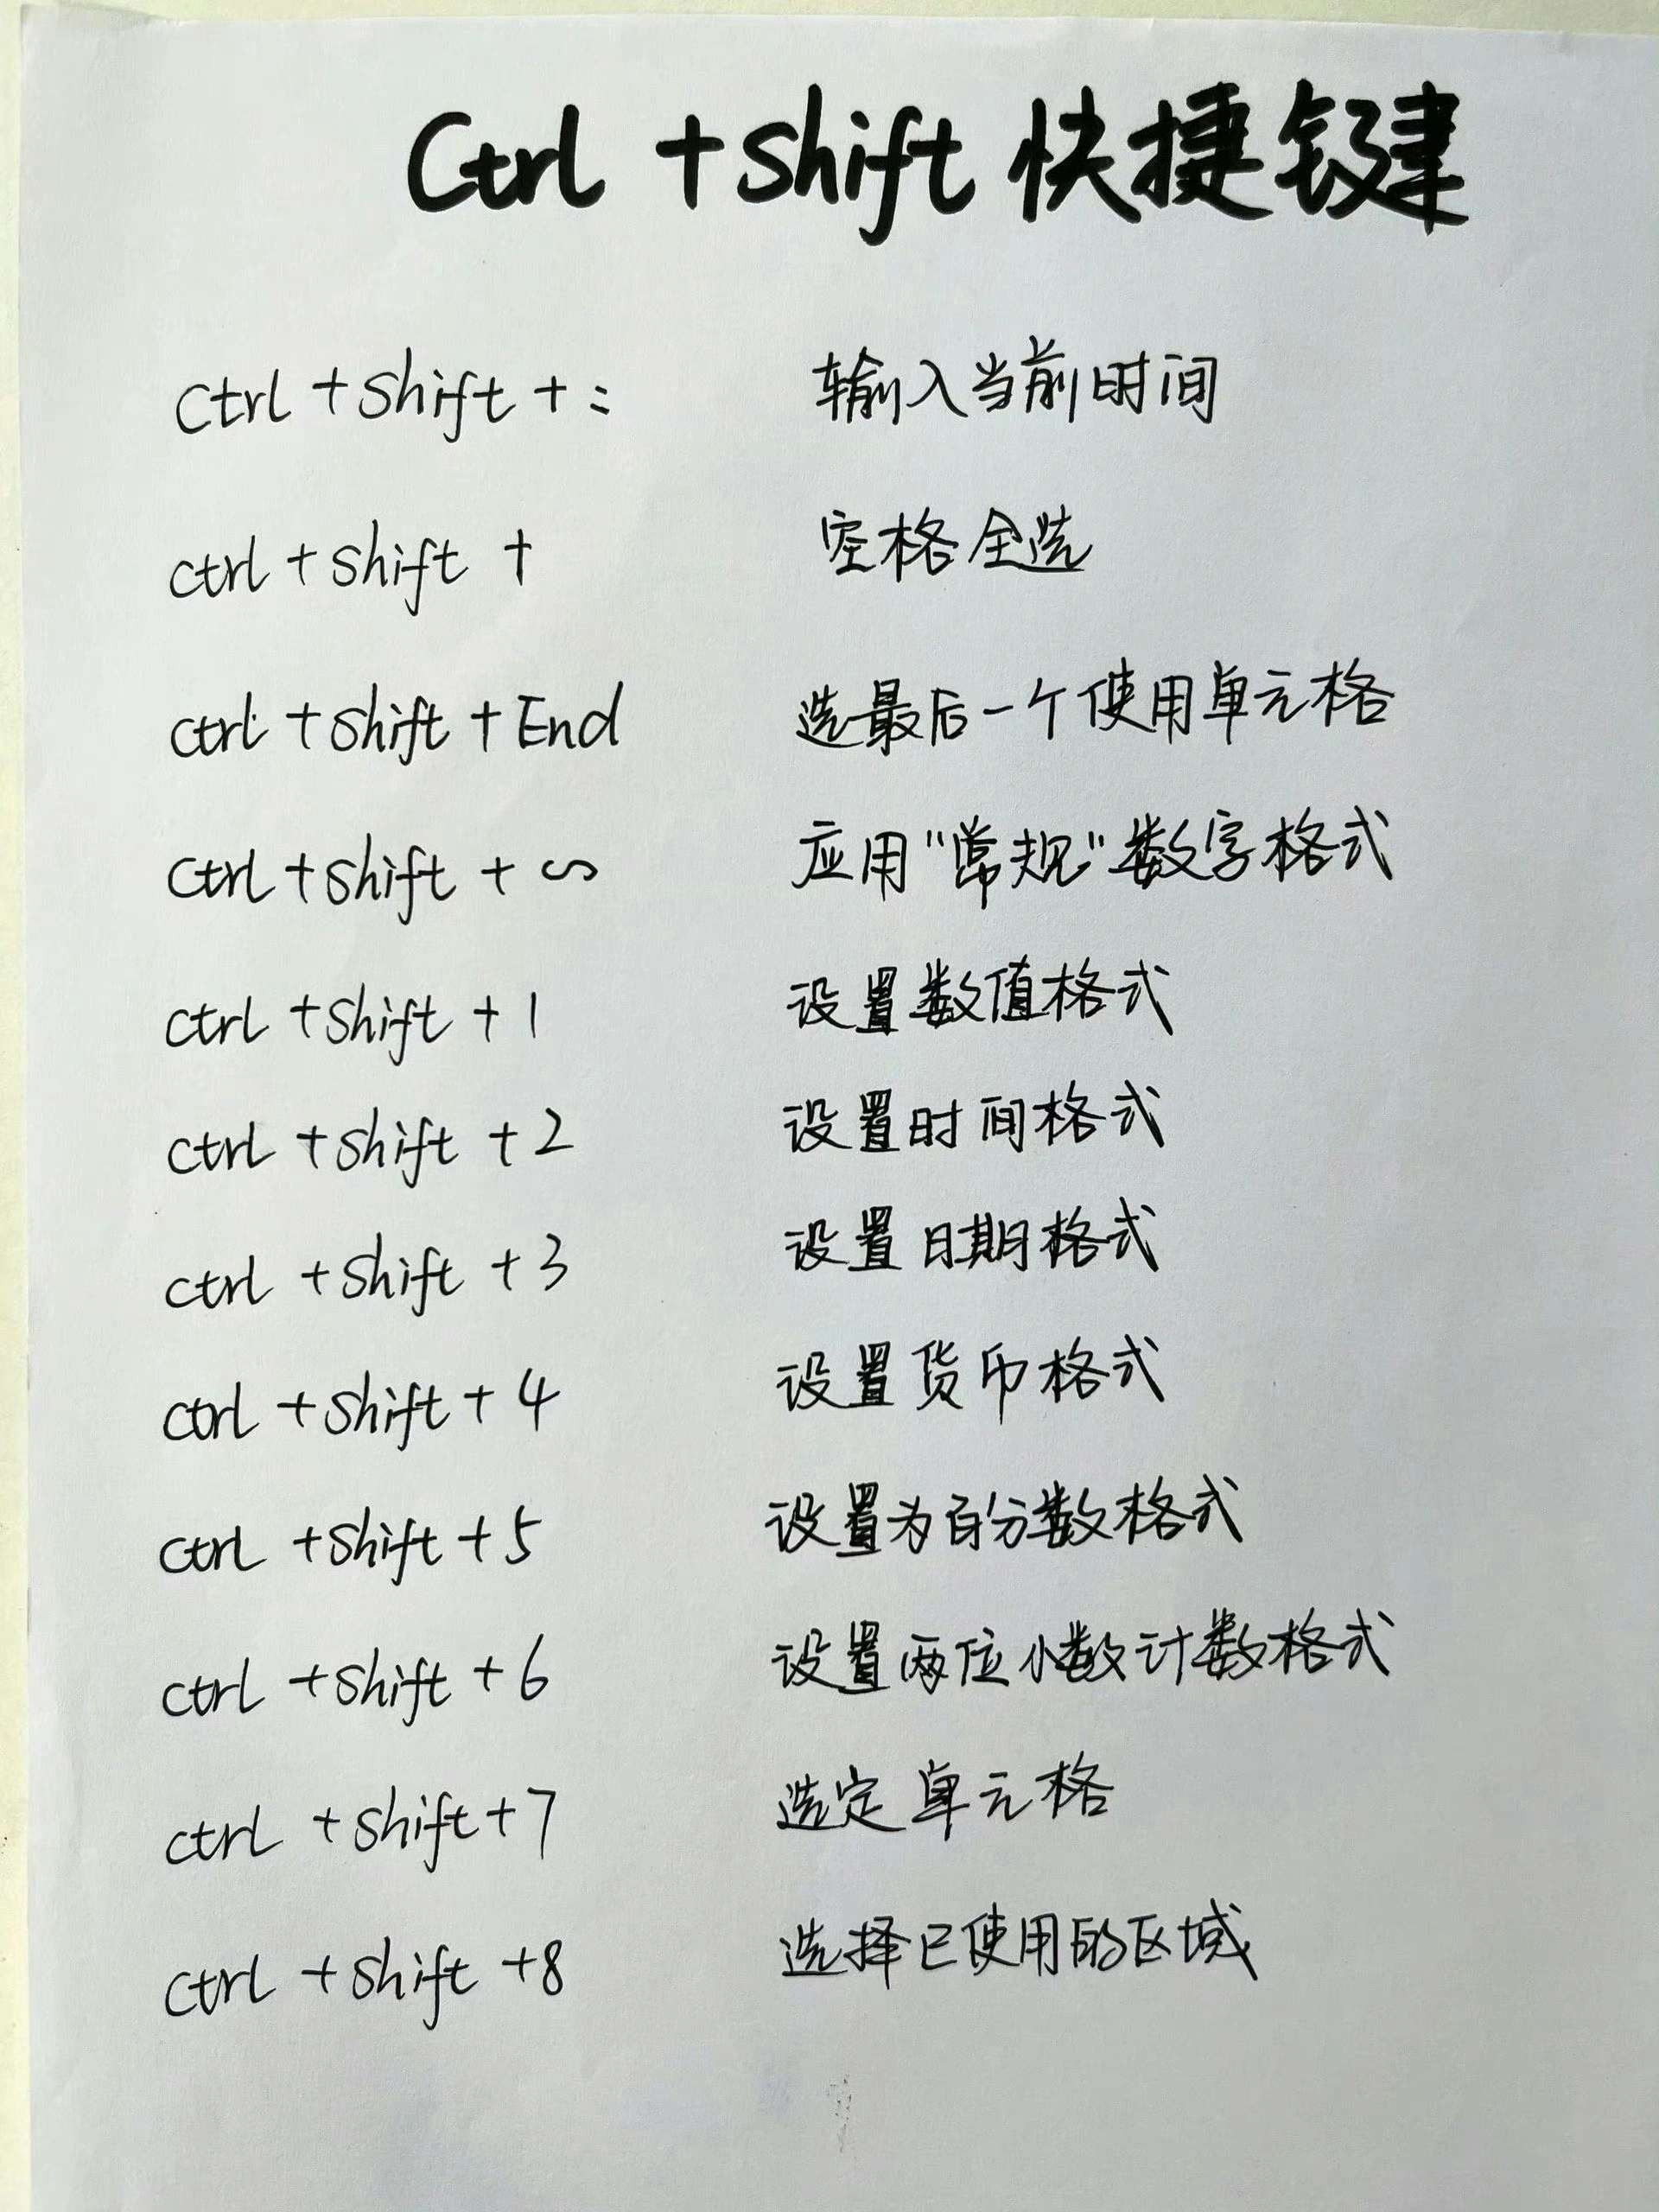 Ctrl +shift 快捷键
Ctrl +Shift +: 输入当前时间
ctrl +shift + 空格全选
ctrl +shift +End 选最后一个使用单元格
ctrl +shift + ~ 应用"常规"数字格式
ctrl +shift +1 设置数值格式
ctrl +shift +2 设置时间格式
ctrl +shift +3 设置日期格式
ctrl +shift +4 设置货币格式
ctrl +shift +5 设置为百分数格式
ctrl +shift +6 设置两位小数计数格式
ctrl +shift+7 选定单元格
ctrl +shift +8 选择已使用的区域